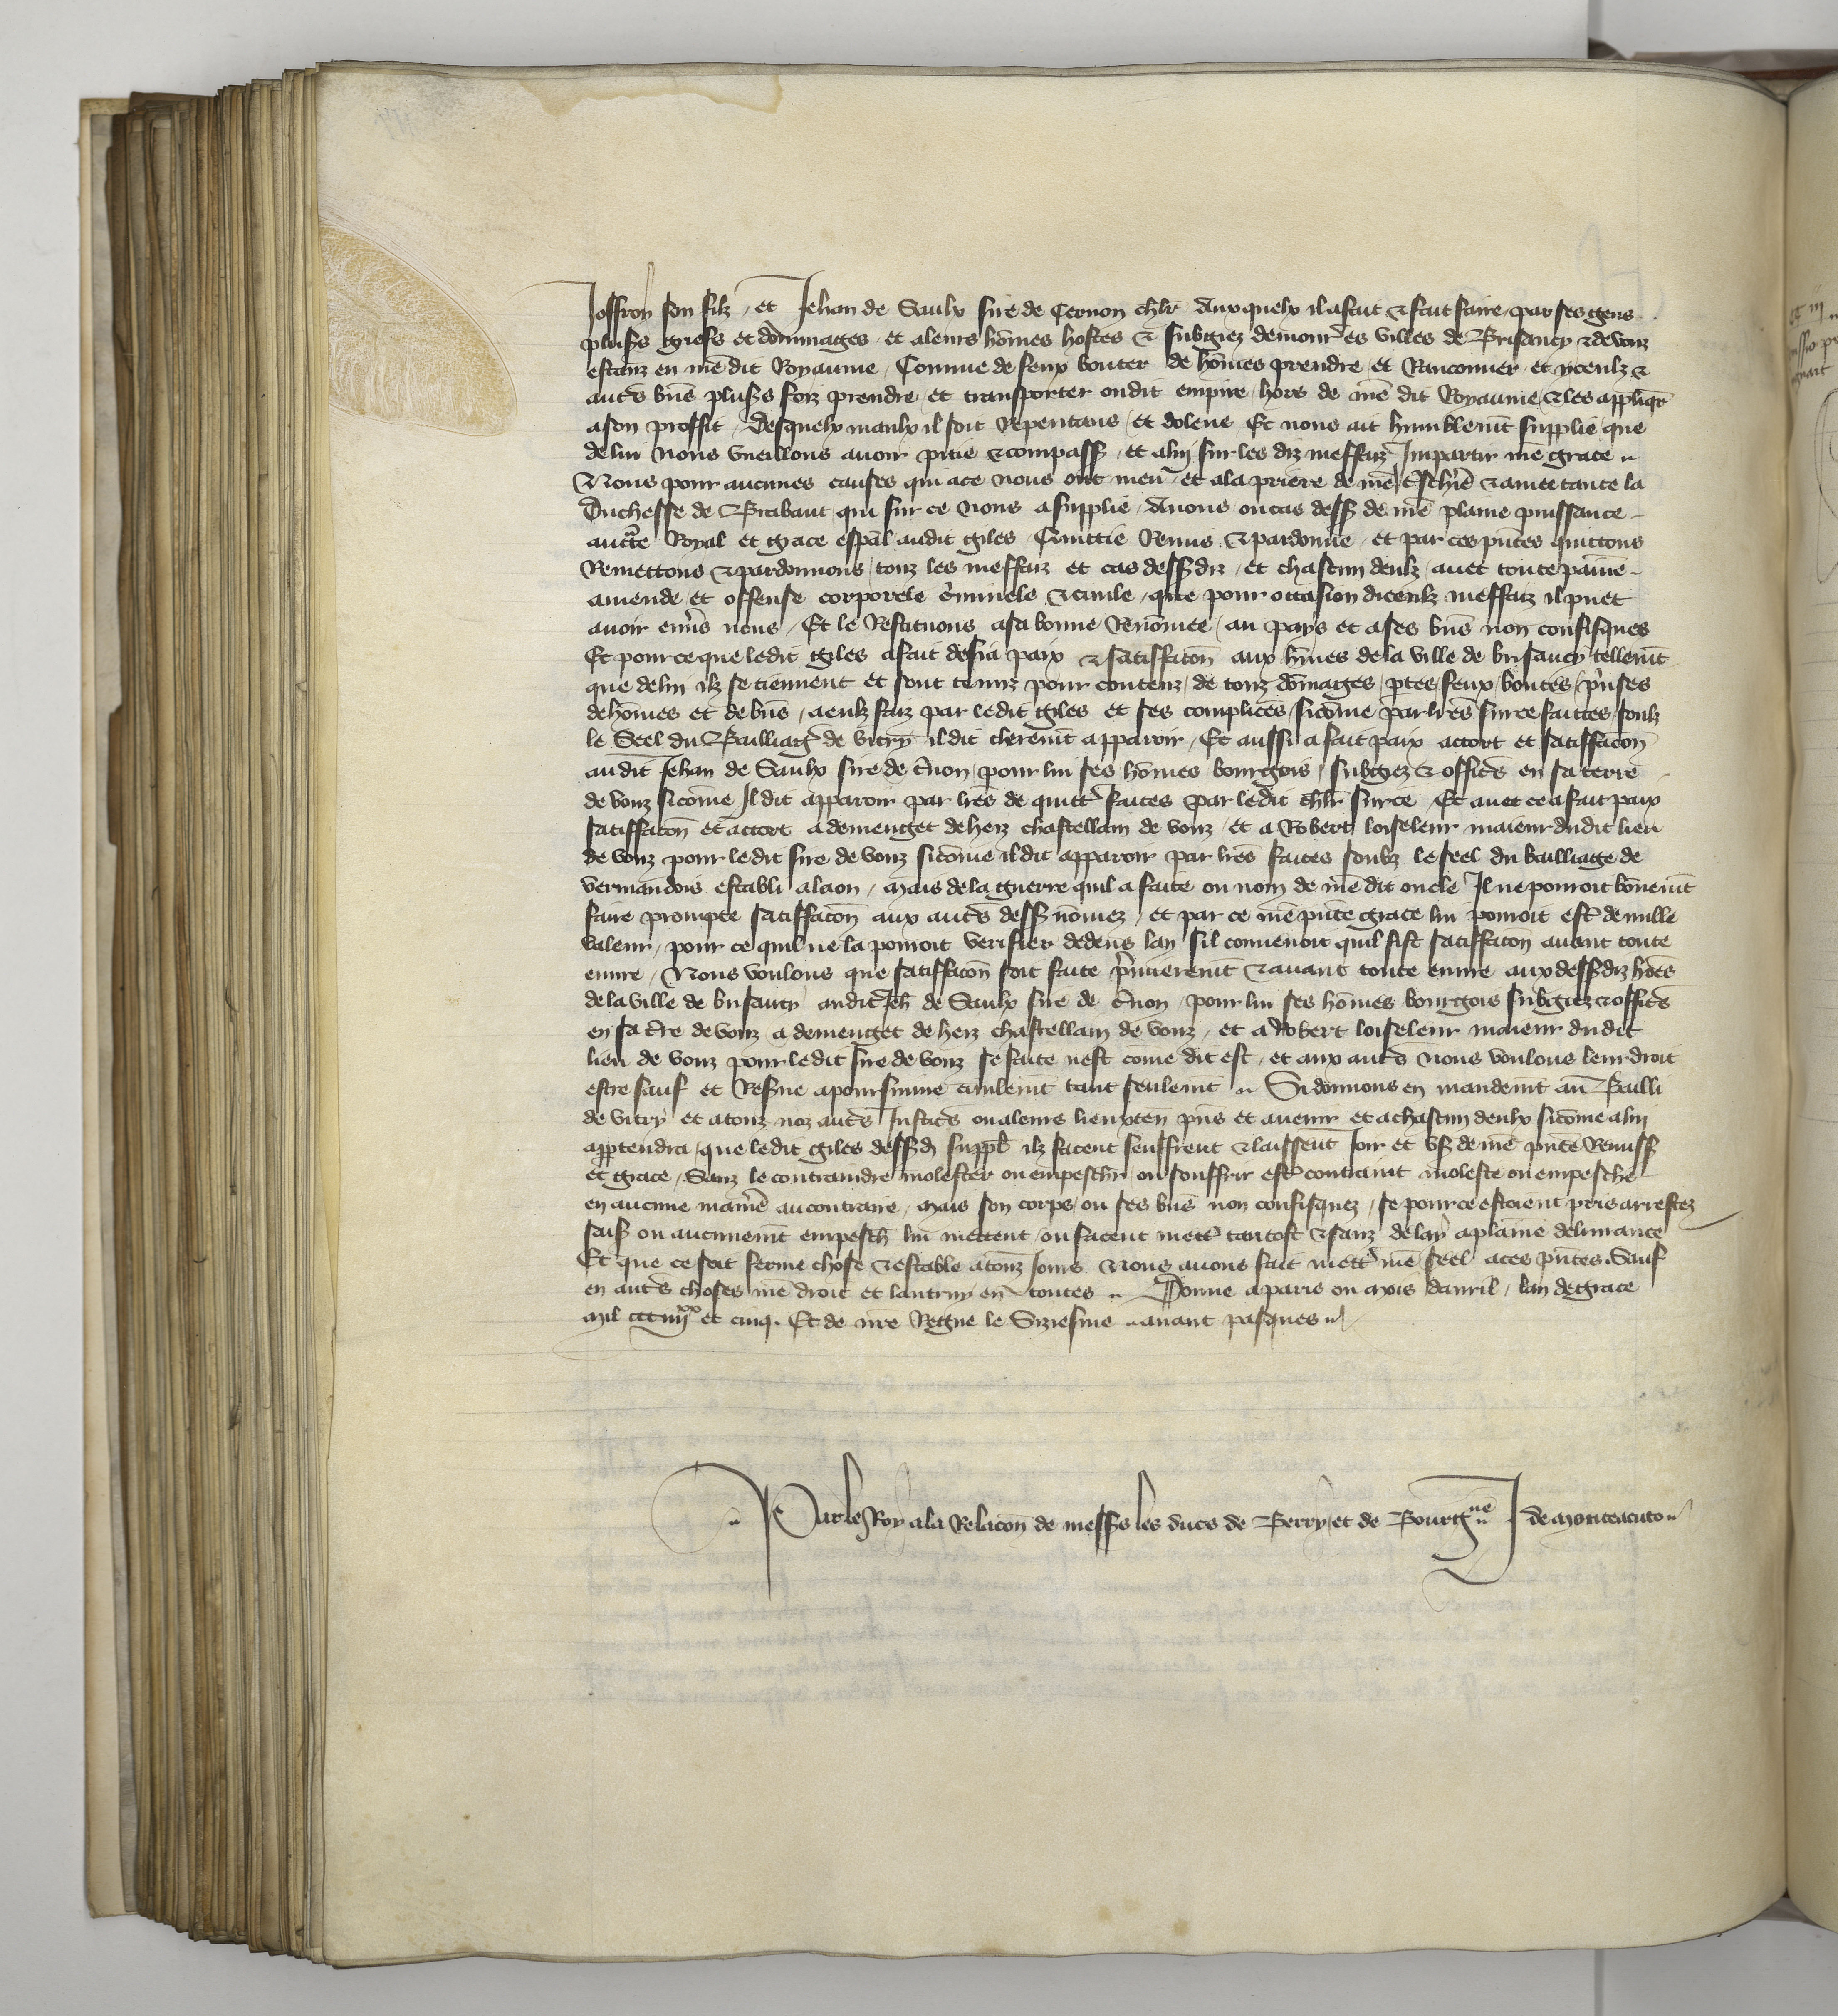 Joffroy son filz, et Jehan de Saulx sire de Cernon chlr Auxquelx il a fait & fait faire par ses gens
plusrs griefs et dommages et a leurs hōmes hostes & subgiez demour̄ es villes de Brisancy & de Vonz
estanz en nr̄e dit Royaume, Comme de feux bouter de hōmes prendre et Ranconner et yceulx &
autrs biēs plusrs foiz prendre et transporter oudit empire hors de nr̄e dit Royaume & les appliqr̄
a son proffit, Desquelx maulx il soit Repentans et dolens Et nous ait humblemēt supplie que
de lui Nous vueillons avoir pitie & compass, et a lui sur les diz meffaiz Impartir nr̄e grace
Nous pour aucunes causes qui a ce nous ont meu et a la priere de nr̄e tschiere & amee tante la
Duchesse de Brabant qui sur ce Nous a supplie, Avons ou cas dess de nr̄e plaine puissance
auctte Royal et grace espāl audit Giles Quittie Remis & pardonne, et par ces pn̄tes quittons
Remettons & pardonnons touz les meffaiz et cas dess diz, et chascun deulx avec toute painne
amende et offense corporele c̄minele & civile, que pour occasion diceulx meffaiz il puet
avoir envs nous, Et le Restituons a sa bonne Renōmee au pays et a ses biēs non confisques
Et pour ce que ledit Giles a fait desia paix & satisfaccōn aux hōmes de la ville de Brisancy tellemēt
que de lui ilz se tiennent et sont tenuz pour contenz de touz dōmages, ptes, feux boutes, p̄nses
de hōmes et de biēs, a eulx faiz par ledit Giles et ses complices, sicōme par lr̄es sur ce faittes soulz
le Seel du Bailliaige de Vitry il dit cleremēt apparoir, Et aussi a fait paix accort et satisfaccōn
audit Jehan de Saulx sire de C̄non, pour lui ses hōmes bourgois subgiez & officrs en sa terre
de Vonz sicōme Il dit apparoir par lr̄es de quitt̄ faites par ledit chlr sur ce, Et avec ce a fait paix
satisfaccōn et accort a Demenget de Herz chastellain de Vonz, et a Robert loiseleur maieur dudit lieu
de Vonz pour ledit sire de Vonz sicōme il dit apparoir par lr̄es faites soubz le seel du bailliage de
Vermandois establi a Laon, Mais de la guerre quil a faite ou nom de nr̄e dit oncle Il ne pourroit bōnemēt
faire prompte satisfaccōn aux autrs dess nōmez, et par ce nr̄e pn̄te grace lui pourroit estr̄ de nulle
valeur, pour ce quil ne la pourroit verifier dedens lan sil convenoit quil fist satisfaccōn avant toute
euvre, Nous voulons que satisfaccōn soit faite p̄mieremēt & avant toute euvre aux dess diz hōēs
de la ville de Brisancy audit Jeh de Saulx sire de C̄non, pour lui ses hōmes bourgois subgiez & officrs
en sa tr̄re de Vonz a Demenget de Herz chastellain de Vonz, et a Robert loiseleur maieur dudit
lieu de Vonz pour ledit sire de Vonz se faite nest cōme dit est, et aux autrs Nous voulons leur droit
estre sauf et Reserve a poursuivre civilemēt tant seulemēt Si donnons en mandemēt au Bailli
de Vitry et a touz noz autrs Justicrs ou a leurs lieuxten̄ pn̄s et avenir et a chascun deulx sicōme a lui
appartendra, que ledit Giles dess d suppl̄ ilz facent seuffrent & laissent Joir et vs de nr̄e pn̄te Remiss
et grace, Sanz le contraindre molester ou empeschier ou souffrir estr̄ contraint moleste ou empesche
en aucune manr̄e au contraire, Mais son corps, ou ses biēs non confisquez, se pour ce estoient pris arrestez
saiss ou aucunemēt empesch lui mettent, ou facent mettr̄ tantost & sanz delay a plaine delivrance
Et que ce soit ferme chose & estable a touz Jours Nous avons fait mettr̄ nr̄e Seel a ces pn̄tes Sauf
en autrs choses nr̄e droit et lautruy en toutes Donne a Paris ou Mois davril, lan de grace
Mil CCCIIIIxx et cinq. Et de nr̄e Regne le Siziesme avant pasques
Par le Roy a la Relacōn de messrs les ducs de Berry et de Bourgne J de Monteacuto